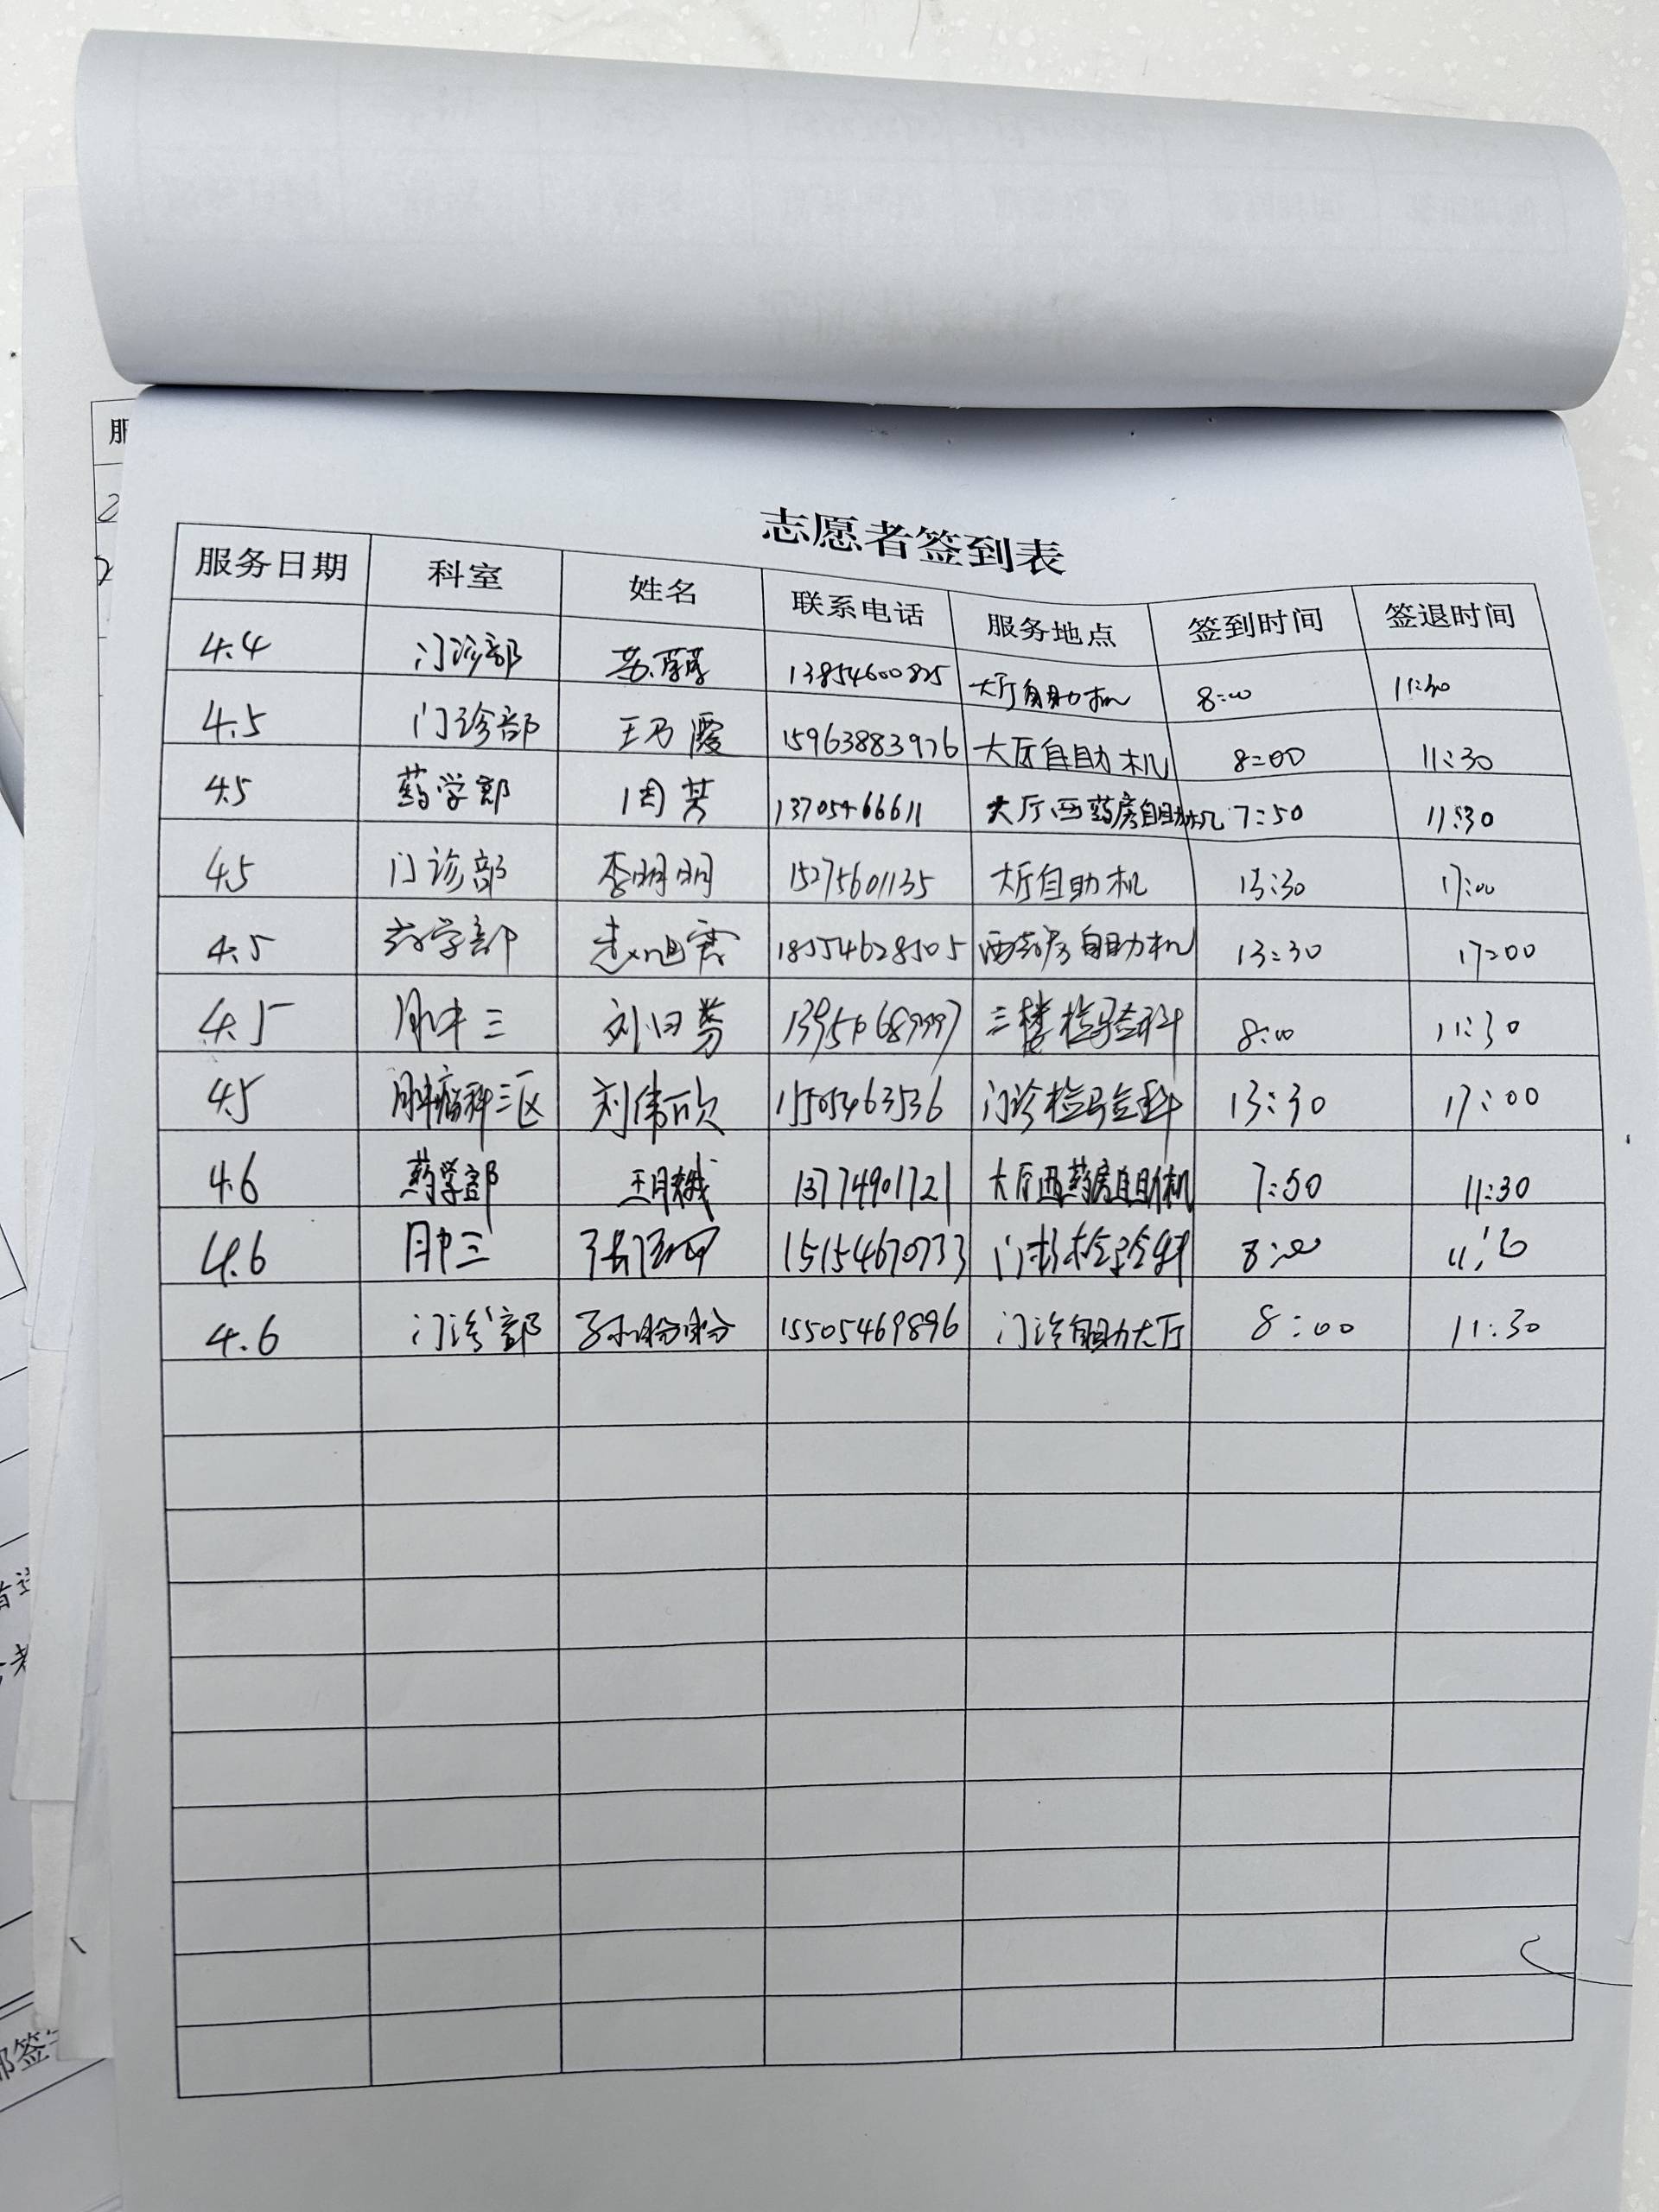 志愿者签到表
服务日期 科室 姓名 联系电话 服务地点 签到时间 签退时间
4.4 门诊部 苏 13854600825 大厅自助机 8:00 11:30
4.5 门诊部 王乃霞 15963883976 大厅自助机 8:00 11:30
4.5 药学部 周芳 13705466611 大厅西药房自助机 7:50 11:30
4.5 门诊部 李明明 15275601135 大厅自助机 13:30 17:00
4.5 药学部 18554628505 西药房自助机 13:30 17:00
4.5 肿三 刘 三楼检验科 8:00 11:30
4.5 肿瘤科三区 刘伟欣 15505463536 门诊检验科 13:30 17:00
4.6 药学部 王月娥 13774901721 大厅西药房自助机 7:50 11:30
4.6 肿三 张 15154670733 门诊检验科 8:00
4.6 门诊部 孙盼盼 15505469896 门诊自助大厅 8:00 11:30